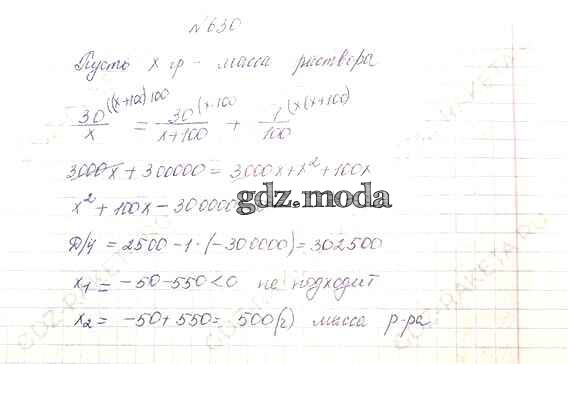 № 630
Пусть x гр - масса раствора
30/x ((x+100)100 = 30/(x+100) (x·100 + 1/100 (x(x+100)
3000x + 300000 = 3000x + x² + 100x
x² + 100x - 300000
gdz.moda
D/4 = 2500 - 1·(-300000) = 302500
x₁ = -50-550<0 не подходит
x₂ = -50+550 = 500(г) масса р-ра
GDZ-RAKETA.RU